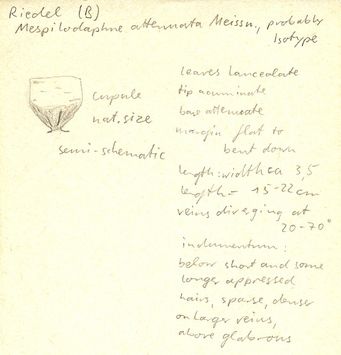 Riedel (B)
Mespilodaphne attenuata Meissn., probably
Isotype
cupule
nat. size
semi-schematic
leaves lanceolate
tip acuminate
base attenuate
margin flat to
bent down
length:width ca 3,5
length = 15-22 cm
veins diverging at
20-70°
indumentum:
below short and some
longer appressed
hairs, sparse, denser
on larger veins,
above glabrous